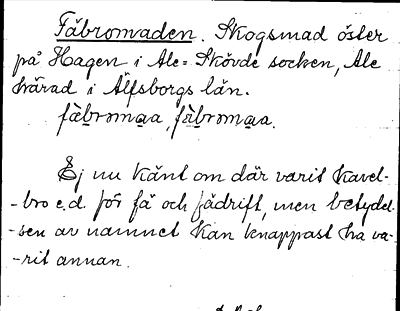 Fäbromaden. Skogsmad öster
på Hagen i Ale-Skövde socken, Ale
härad i Älfsborgs län.
fäbromaa, fäbromaa.
Ej nu känt om där varit kavel-
-bro e.d. för fä och fädrift, men betydel-
-sen av namnet kan knappast ha va-
-rit annan.